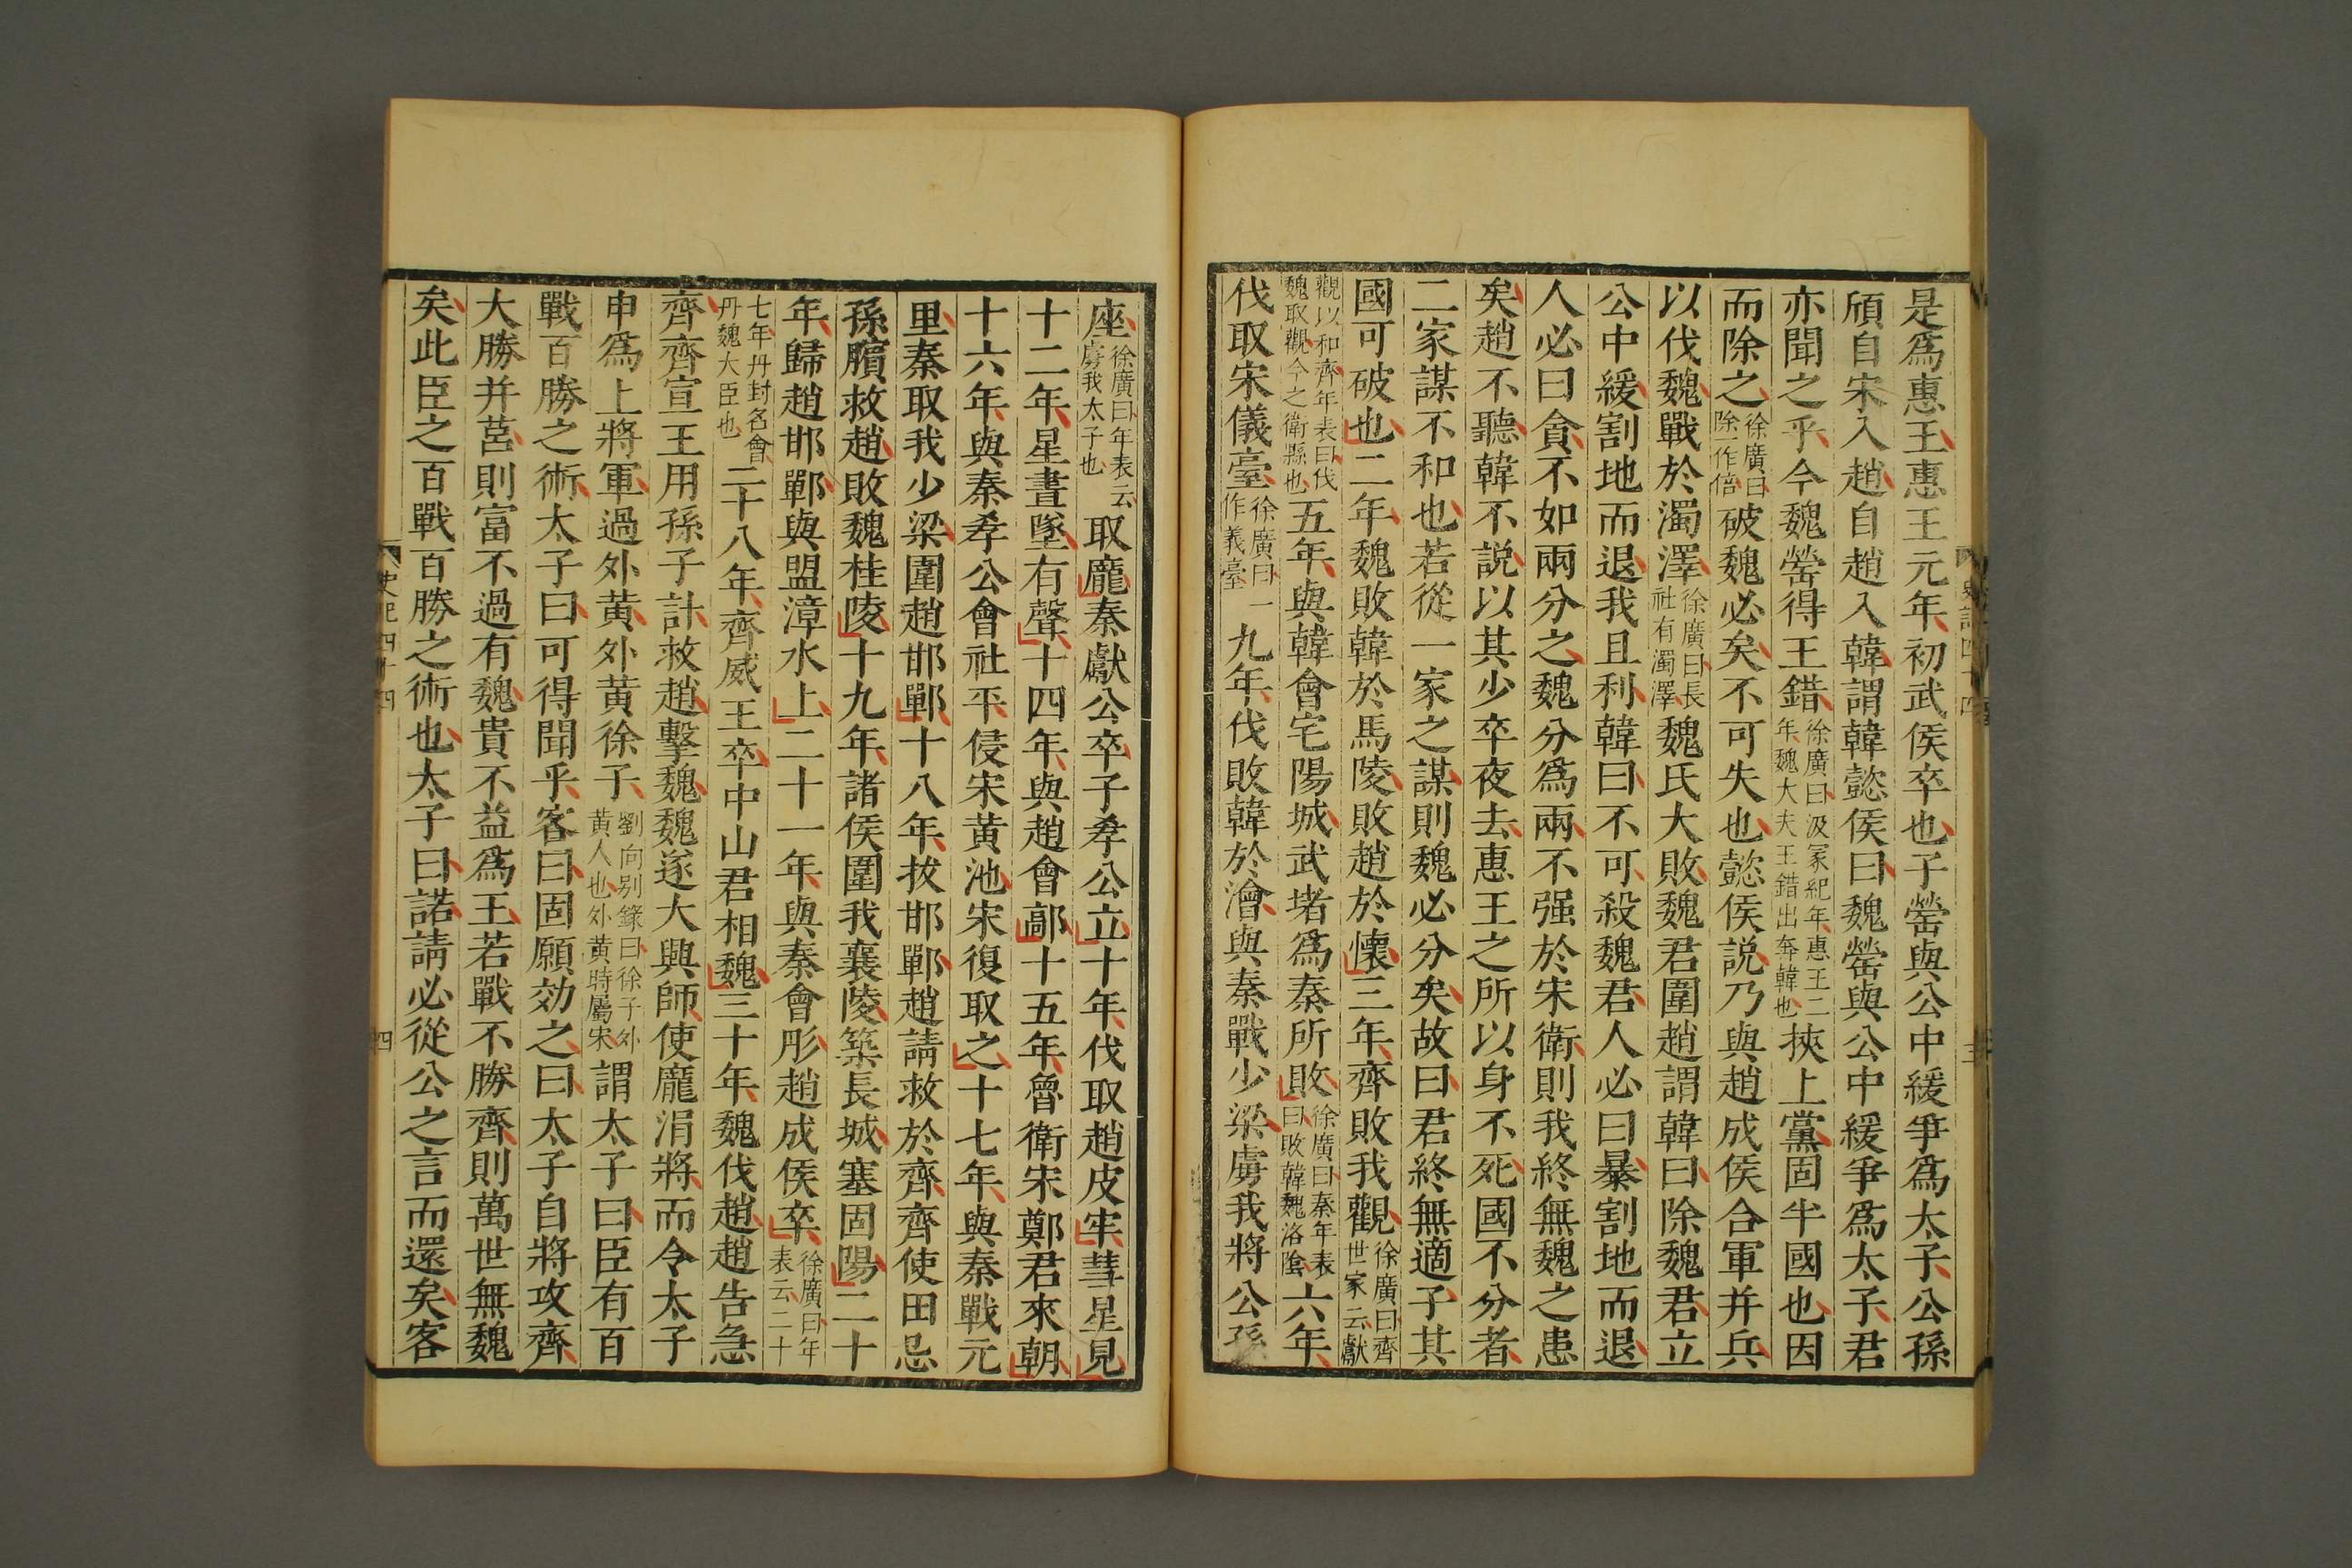 是爲惠王惠王元年初武侯卒也子罃與公中緩爭爲太子公孫
頎自宋入趙自趙入韓謂韓懿侯曰魏罃與公中緩爭爲太子君
亦聞之乎今魏罃得王錯徐廣曰汲冢紀年惠王二年魏大夫王錯出奔韓也挾上黨固半國也因
而除之徐廣曰除一作倍破魏必矣不可失也懿侯説乃與趙成侯合軍并兵
以伐魏戰於濁澤徐廣曰長社有濁澤魏氏大敗魏君圍趙謂韓曰除魏君立
公中緩割地而退我且利韓曰不可殺魏君人必曰暴割地而退
人必曰貪不如兩分之魏分爲兩不强於宋衛則我終無魏之患
矣趙不聽韓不説以其少卒夜去惠王之所以身不死國不分者
二家謀不和也若從一家之謀則魏必分矣故曰君終無適子其
國可破也二年魏敗韓於馬陵敗趙於懷三年齊敗我觀徐廣曰齊世家云獻
觀以和齊年表曰伐魏取觀今之衛縣也五年與韓會宅陽城武堵爲秦所敗徐廣曰秦年表曰敗韓魏洛陰六年
伐取宋儀臺徐廣曰一作義臺九年伐敗韓於澮與秦戰少梁虜我將公孫
座徐廣曰年表云虜我太子也取龐秦獻公卒子孝公立十年伐取趙皮牢彗星見
十二年星晝墜有聲十四年與趙會鄗十五年魯衛宋鄭君來朝
十六年與秦孝公會社平侵宋黄池宋復取之十七年與秦戰元
里秦取我少梁圍趙邯鄲十八年拔邯鄲趙請救於齊齊使田忌
孫臏救趙敗魏桂陵十九年諸侯圍我襄陵築長城塞固陽二十
年歸趙邯鄲與盟漳水上二十一年與秦會彤趙成侯卒徐廣曰年表云二十
七年丹封名會丹魏大臣也二十八年齊威王卒中山君相魏三十年魏伐趙趙告急
齊齊宣王用孫子計救趙擊魏魏遂大興師使龐涓將而令太子
申爲上將軍過外黄外黄徐子劉向别錄曰徐子外黄人也外黄時屬宋謂太子曰臣有百
戰百勝之術太子曰可得聞乎客曰固願効之曰太子自將攻齊
大勝并莒則富不過有魏貴不益爲王若戰不勝齊則萬世無魏
矣此臣之百戰百勝之術也太子曰諾請必從公之言而還矣客
史記四十四
四